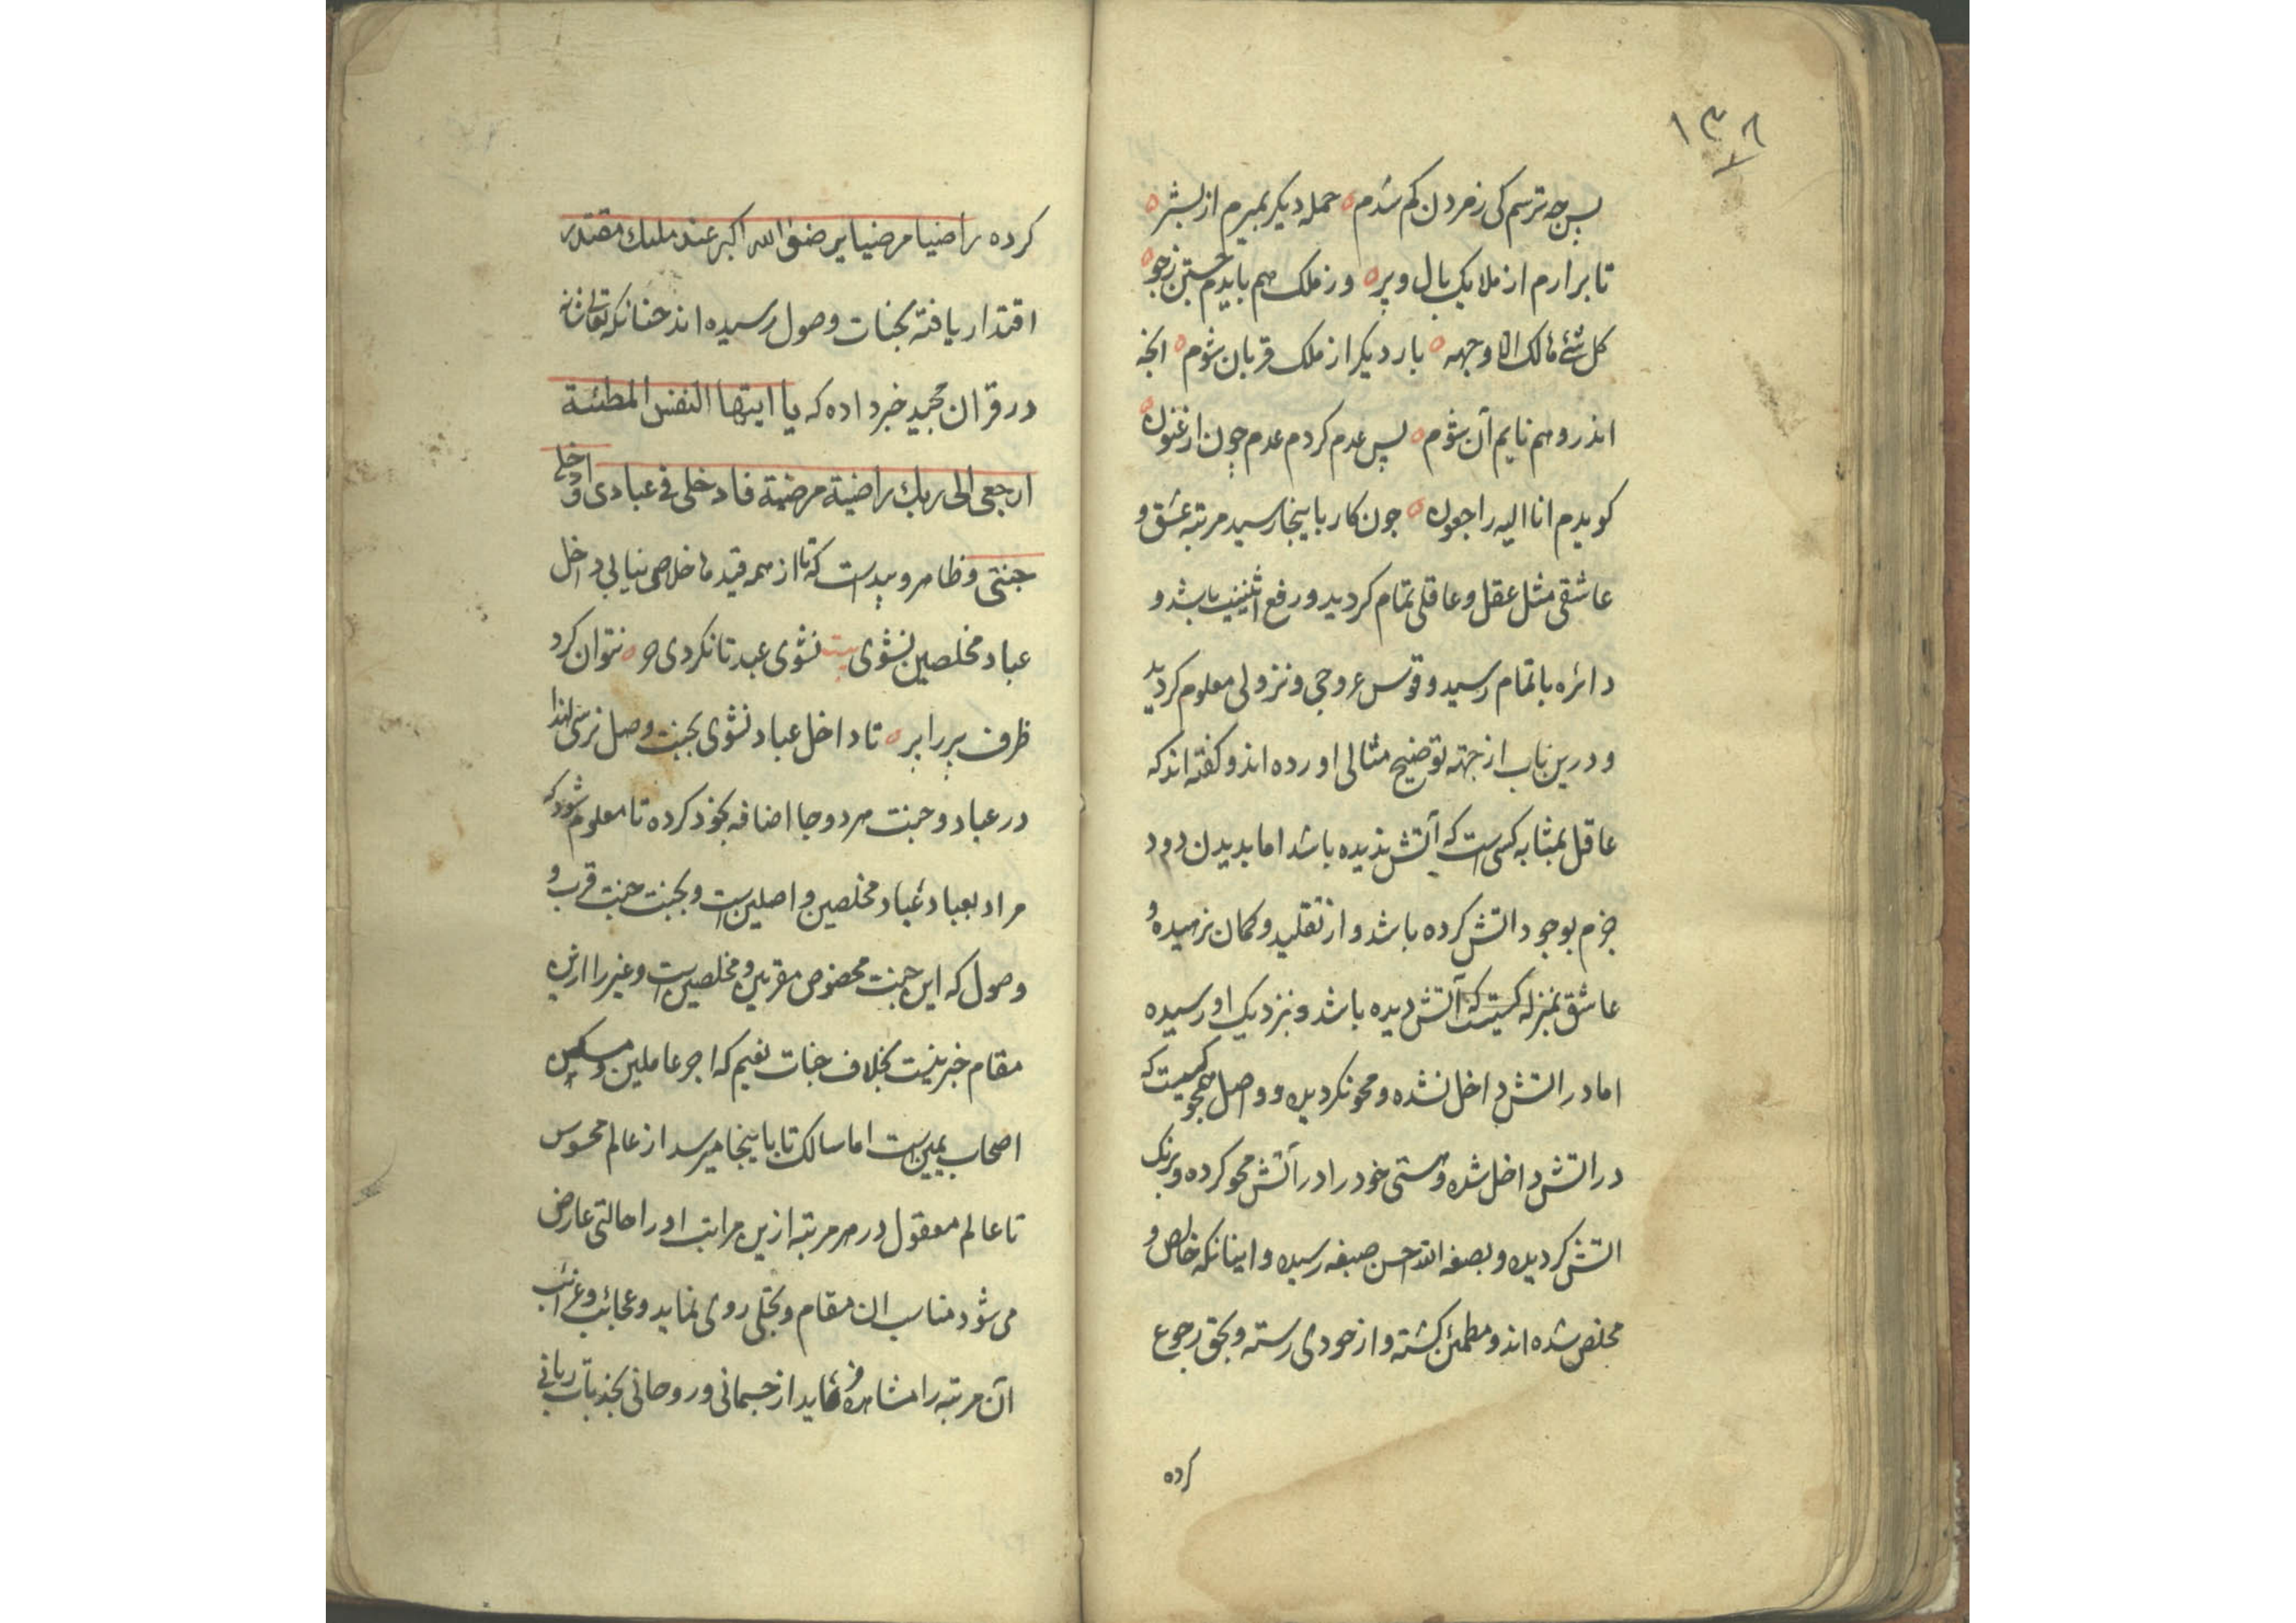 ۱۳۸
پس چه ترسم کی ز مردن کم شدم ه حمله دیکر بمیرم از بشر ه
تا برارم از ملایک بال و پر ه وز ملک هم بایدم جستن ز جو ه
کل شئ هالک الا وجهه ه بار دیکر از ملک قربان شوم ه انچه
اندر وهم نایم آن شوم ه پس عدم کردم عدم چون ارغنون ه
کویدم انا الیه راجعون ه چون کار باینجا رسید مرتبه عشق و
عاشقی مثل عقل و عاقلی تمام کردید و رفع اثنینیت باشد و
دائره باتمام رسید و قوس عروجی و نزولی معلوم کردید
و درین باب از جهته توضیح مثالی اورده اند و کفته اند که
عاقل بمثابه کسی است که آتش ندیده باشد اما بدیدن دود
جزم بوجود اتش کرده باشد و از تقلید و کمان نرهیده و
عاشق بمنزله کسیست که آتش دیده باشد و بنزدیک او رسیده
اما در اتش داخل نشده و محو نکردیده و واصل همچو کسیست که
در اتش داخل شده و هستی خود را در آتش محو کرده و برنک
اتش کردیده و بصبغه الله احسن صبغه رسیده و اینانکه خالص و
مخلص شده اند و مطمئن کشته و از خودی رسته و بحق رجوع
کرده
کرده راضیا مرضیا برضوان الله اکبر عند ملیک مقتدر
اقتدار یافته بجنات وصول رسیده اند چنانکه تعالی شانه
در قران مجید خبر داده که یا ایتها النفس المطئنة
ارجعی الی ربک راضیة مرضیة فادخلی فی عبادی وادخلی
جنتی و ظاهر و پیداست که تا از همه قیدها خلاصی نیابی داخل
عباد مخلصین نشوی بیت نشوی عبد تا نکردی حر ه نتوان کرد
ظرف پر را پر ه تا داخل عباد نشوی بجنت وصل نرسی لهذا
در عباد و جنت هر دو جا اضافه بخود کرده تا معلوم شود که
مراد بعباد عباد مخلصین واصلین است و بجنت جنت قرب و
وصول که این جنت مخصوص مقربین و مخلصین است و غیر را ازین
مقام خبر نیست بخلاف جنات نعیم که اجر عاملین و مسکن
اصحاب یمین است اما سالک تا باینجا میرسد از عالم محسوس
تا عالم معقول در هر مرتبه ازین مراتب او را حالتی عارض
می شود مناسب ان مقام و تجلی روی نماید و عجائب و غرائب
آن مرتبه را مشاهده نماید از جسمانی و روحانی بجذبات ربانی